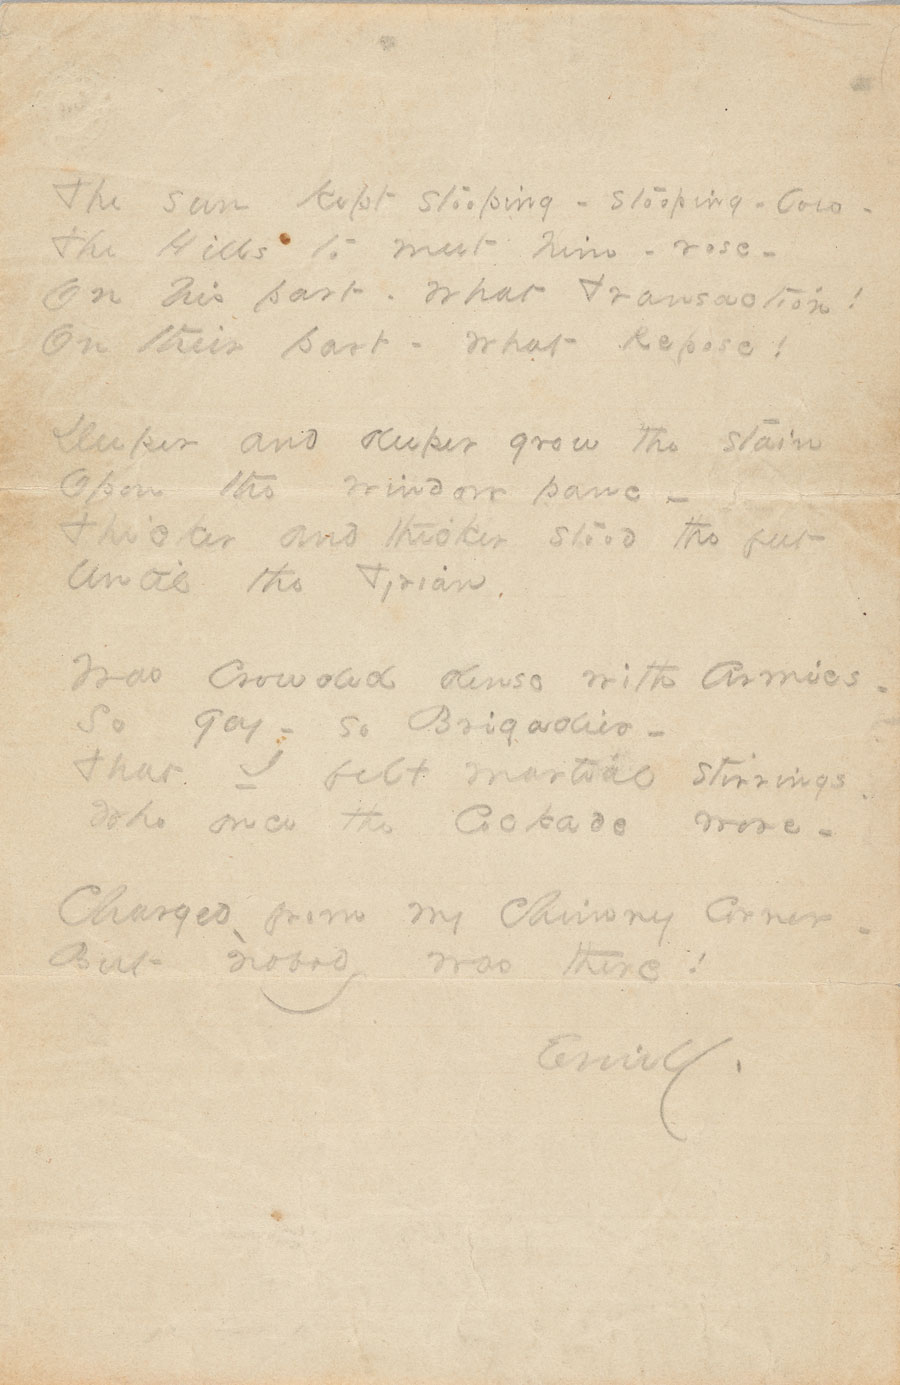 The sun kept stooping - stooping - low -
The Hills to meet him - rose -
On his part - what Transaction!
On their part - what Repose!
Deeper and deeper grew the stain
Upon the window pane -
Thicker and thicker stood the feet
Until the Tyrian.
Was crowded dense with Armies -
So gay - so Brigadier -
That I felt martial stirrings
Who once the Cockade wore -
Charged, from my Chimney Corner -
But nobody was there!
Emily.